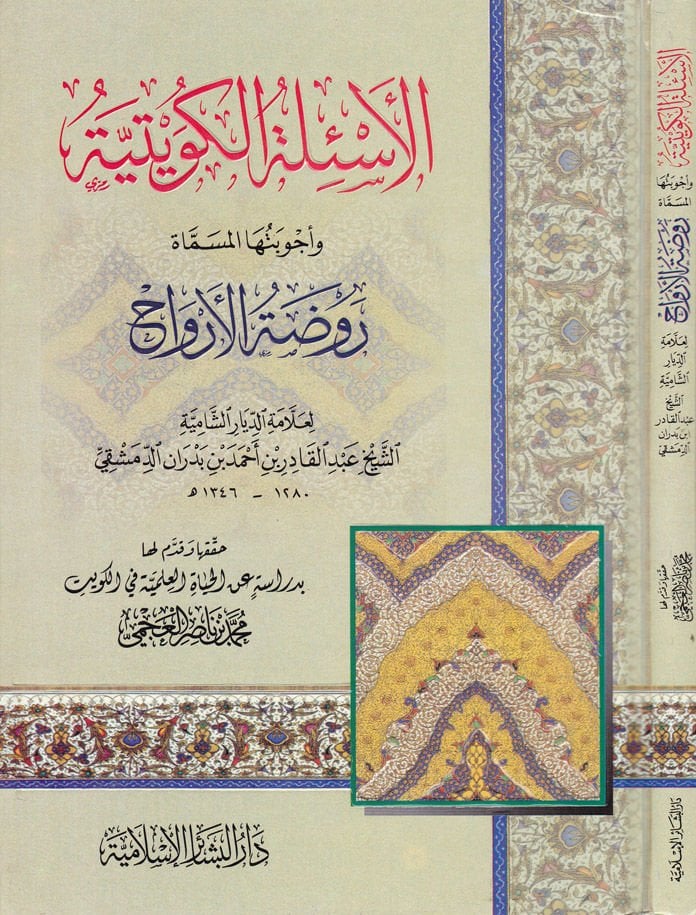 الأَسْئِلَةُ الكُوَيْتِيَّةُ
وَأَجْوِبَتُهَا المُسَمَّاة
رَوْضَةُ الأَرْوَاحِ
لِعَلَّامَةِ الدِّيَارِ الشَّامِيَّةِ
الشَّيْخِ عَبْدِ القَادِرِ بْنِ أَحْمَدَ بْنِ بَدْرَان الدِّمَشْقِيِّ
١٢٨٠ - ١٣٤٦ هـ
حقّقها وقدّم لها
بدراسةٍ عن الحياة العلميّة في الكويت
مُحَمَّدُ بْنُ نَاصِرٍ العَجْمِيُّ
دَارُ البَشَائِرِ الإِسْلَامِيَّة
الأَسْئِلَةُ الكُوَيْتِيَّةُ
وَأَجْوِبَتُهَا
المُسَمَّاة
رَوْضَةُ الأَرْوَاحِ
لِعَلَّامَةِ
الدِّيَارِ
الشَّامِيَّةِ
الشَّيْخِ
عَبْدِ القَادِر
ابْنِ بَدْرَان
الدِّمَشْقِيِّ
حقّقها وقدّم لها
مُحَمَّدُ بْنُ نَاصِرٍ العَجْمِيُّ
دَارُ البَشَائِرِ الإِسْلَامِيَّة